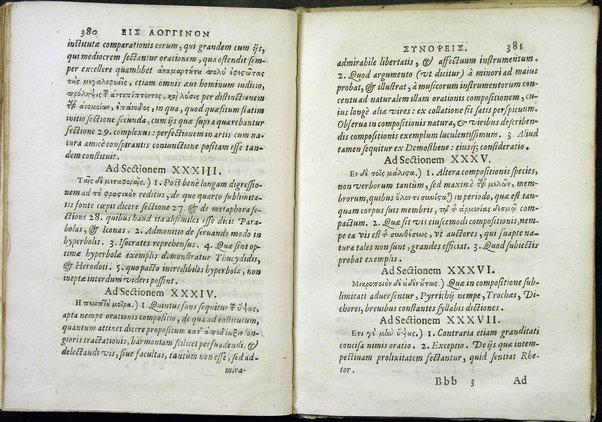 380 ΕΙΣ ΛΟΓΓΙΝΟΝ
instituta comparationis eorum, qui grandem cum ijs,
qui mediocrem sectantur orationem, qua ostendit sem-
per excellere quamlibet ἀναμαρτήτε πολὺ ὑφεςῶτας
τοὺς μεγαλοφυεῖς, etiam omnis aut hominum iudicio,
πρόληψις τῶ ἀντιπίπτοντος, καὶ λύσις per distinctionem
τῶν
initio sectione secunda, cum ijs quæ supra quærebantur
Sectione 29. complexus: perfectionem in artis cum na-
tura amicè conspirantis coniunctione positam esse tan-
dem constituit.
Ad Sectionem XXXIII.
Ταῖς δὲ μεταφοραῖς.) 1. Post benè longam digressio-
nem ad τὸ φραςικὸν reditus, de quo quarto sublimita-
tis fonte cœpit dicere sectione 27. & de metaphora se-
ctione 28. quibus haud ita absimiles esse dicit Para-
bolas, & Iconas. 2. Admonitio de seruando modo in
hyperbolis. 3. Isocrates reprehensus. 4. Quæ sint op-
timæ hyperbolæ exemplis demonstratur Thucydidis,
& Herodoti. 5. quo pacto incredibiles hyperbolæ, non
ineptæ interdum videri possint.
Ad Sectionem XXXIV.
Η πέμπτη μοῖρα.) 1. Quintus fons sequitur τῶ ὕψους,
apta nempe orationis compositio, de qua ad institutum,
quantum attinet dicere propositum κατ᾽ ἀπόδειξιν on-
gioris tractationis, harmoniam scilicet persuadendi, &
delectandi vis, siue facultas, tantùm non esse, sed ad-
mira-
ΣΥΝΟΨΕΙΣ. 381
admirabile libertatis, & affectuum instrumentum.
2. Quod argumento (vt dicitur) à minori ad maius
probat, & illustrat, à musicorum instrumentorum con-
centu ad naturalem illam orationis compositionem, cu-
ius longè aliæ vires: ex collatione fit satis perspicuum.
Obserua in compositionis natura, & viribus describen-
dis compositionis exemplum luculentissimum. 3. Aliud
tamen sequitur ex Demosthene: eiusq́; consideratio.
Ad Sectionem XXXV.
Εν δὲ τοῖς μάλιςα.) 1. Altera compositionis species,
non verborum tantùm, sed maximè τῶν μελῶν, mem-
brorum, quibus in periodo, qua est tan-
quam corpus suis membris, τῷ τ ἁρμονίας δεσμῷ com-
pactum. 2. Quæ sit vis eiusce modi compositionis, nem-
pe ea vis est τ συνθέσεως, vt auctores, qui suapte na-
tura tales non sunt, grandes efficiat. 3. Quod subiectis
probat exemplis.
Ad Sectionem XXXVI.
Μικροποιὸν δ᾽ οὐδὲν οὕτως.) Quæ in compositione sub-
limitati aduersentur, Pyrrichij nempe, Trochæi, Di-
chorei, breuibus constantes syllabis dictiones.
Ad Sectionem XXXVII.
Ετι γε μὼ ὕψους.) 1. Contraria etiam granditati
concisa nimis oratio. 2. Exceptio. De ijs quæ intem-
pestiuam prolixitatem sectantur, quid sentiat Rhe-
tor.
Bbb 3 Ad